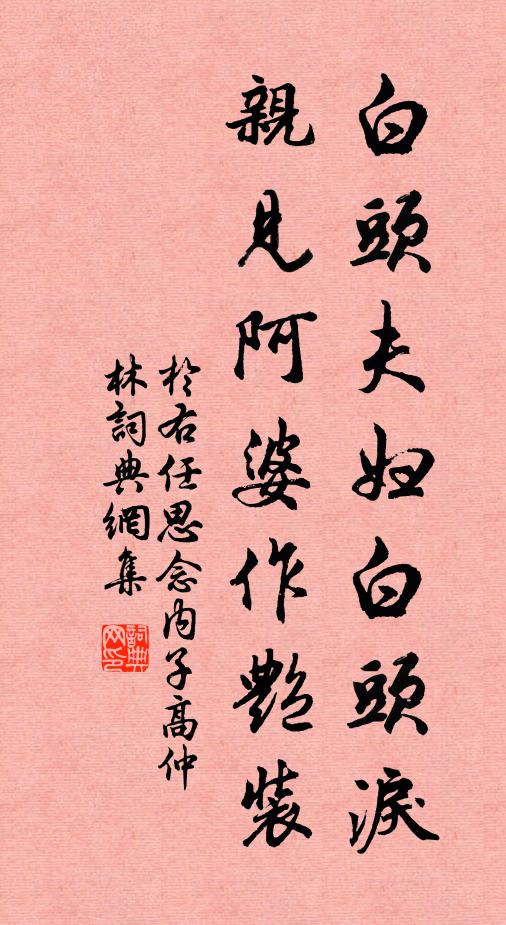 白頭夫妇白頭淚
親見阿婆作艷裝
於右任思念内子高仲
林詞典網集
詞典网印